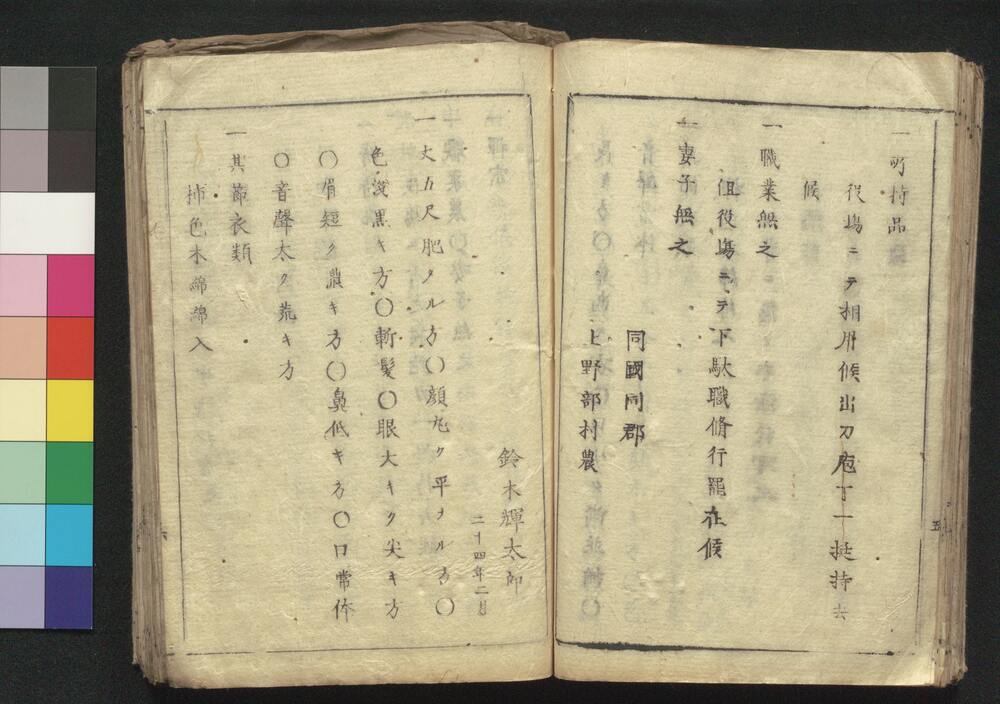 一所持品
役場ニテ相用候出刃庖丁一挺持去
候
一職業無之
但役場ニテ下駄職脩行罷在候
一妻子無之
同國同郡
上野部村農
五
鈴木輝太郎
二十四年二月
一丈五尺肥タル方〇顔丸ク平タル方〇
色淺黒キ方〇斬髪〇眼大キク尖キ方
〇眉短ク濃キ方〇鼻低キ方〇口常体
〇音聲太ク荒キ方
一其節衣類
柿色木綿綿入